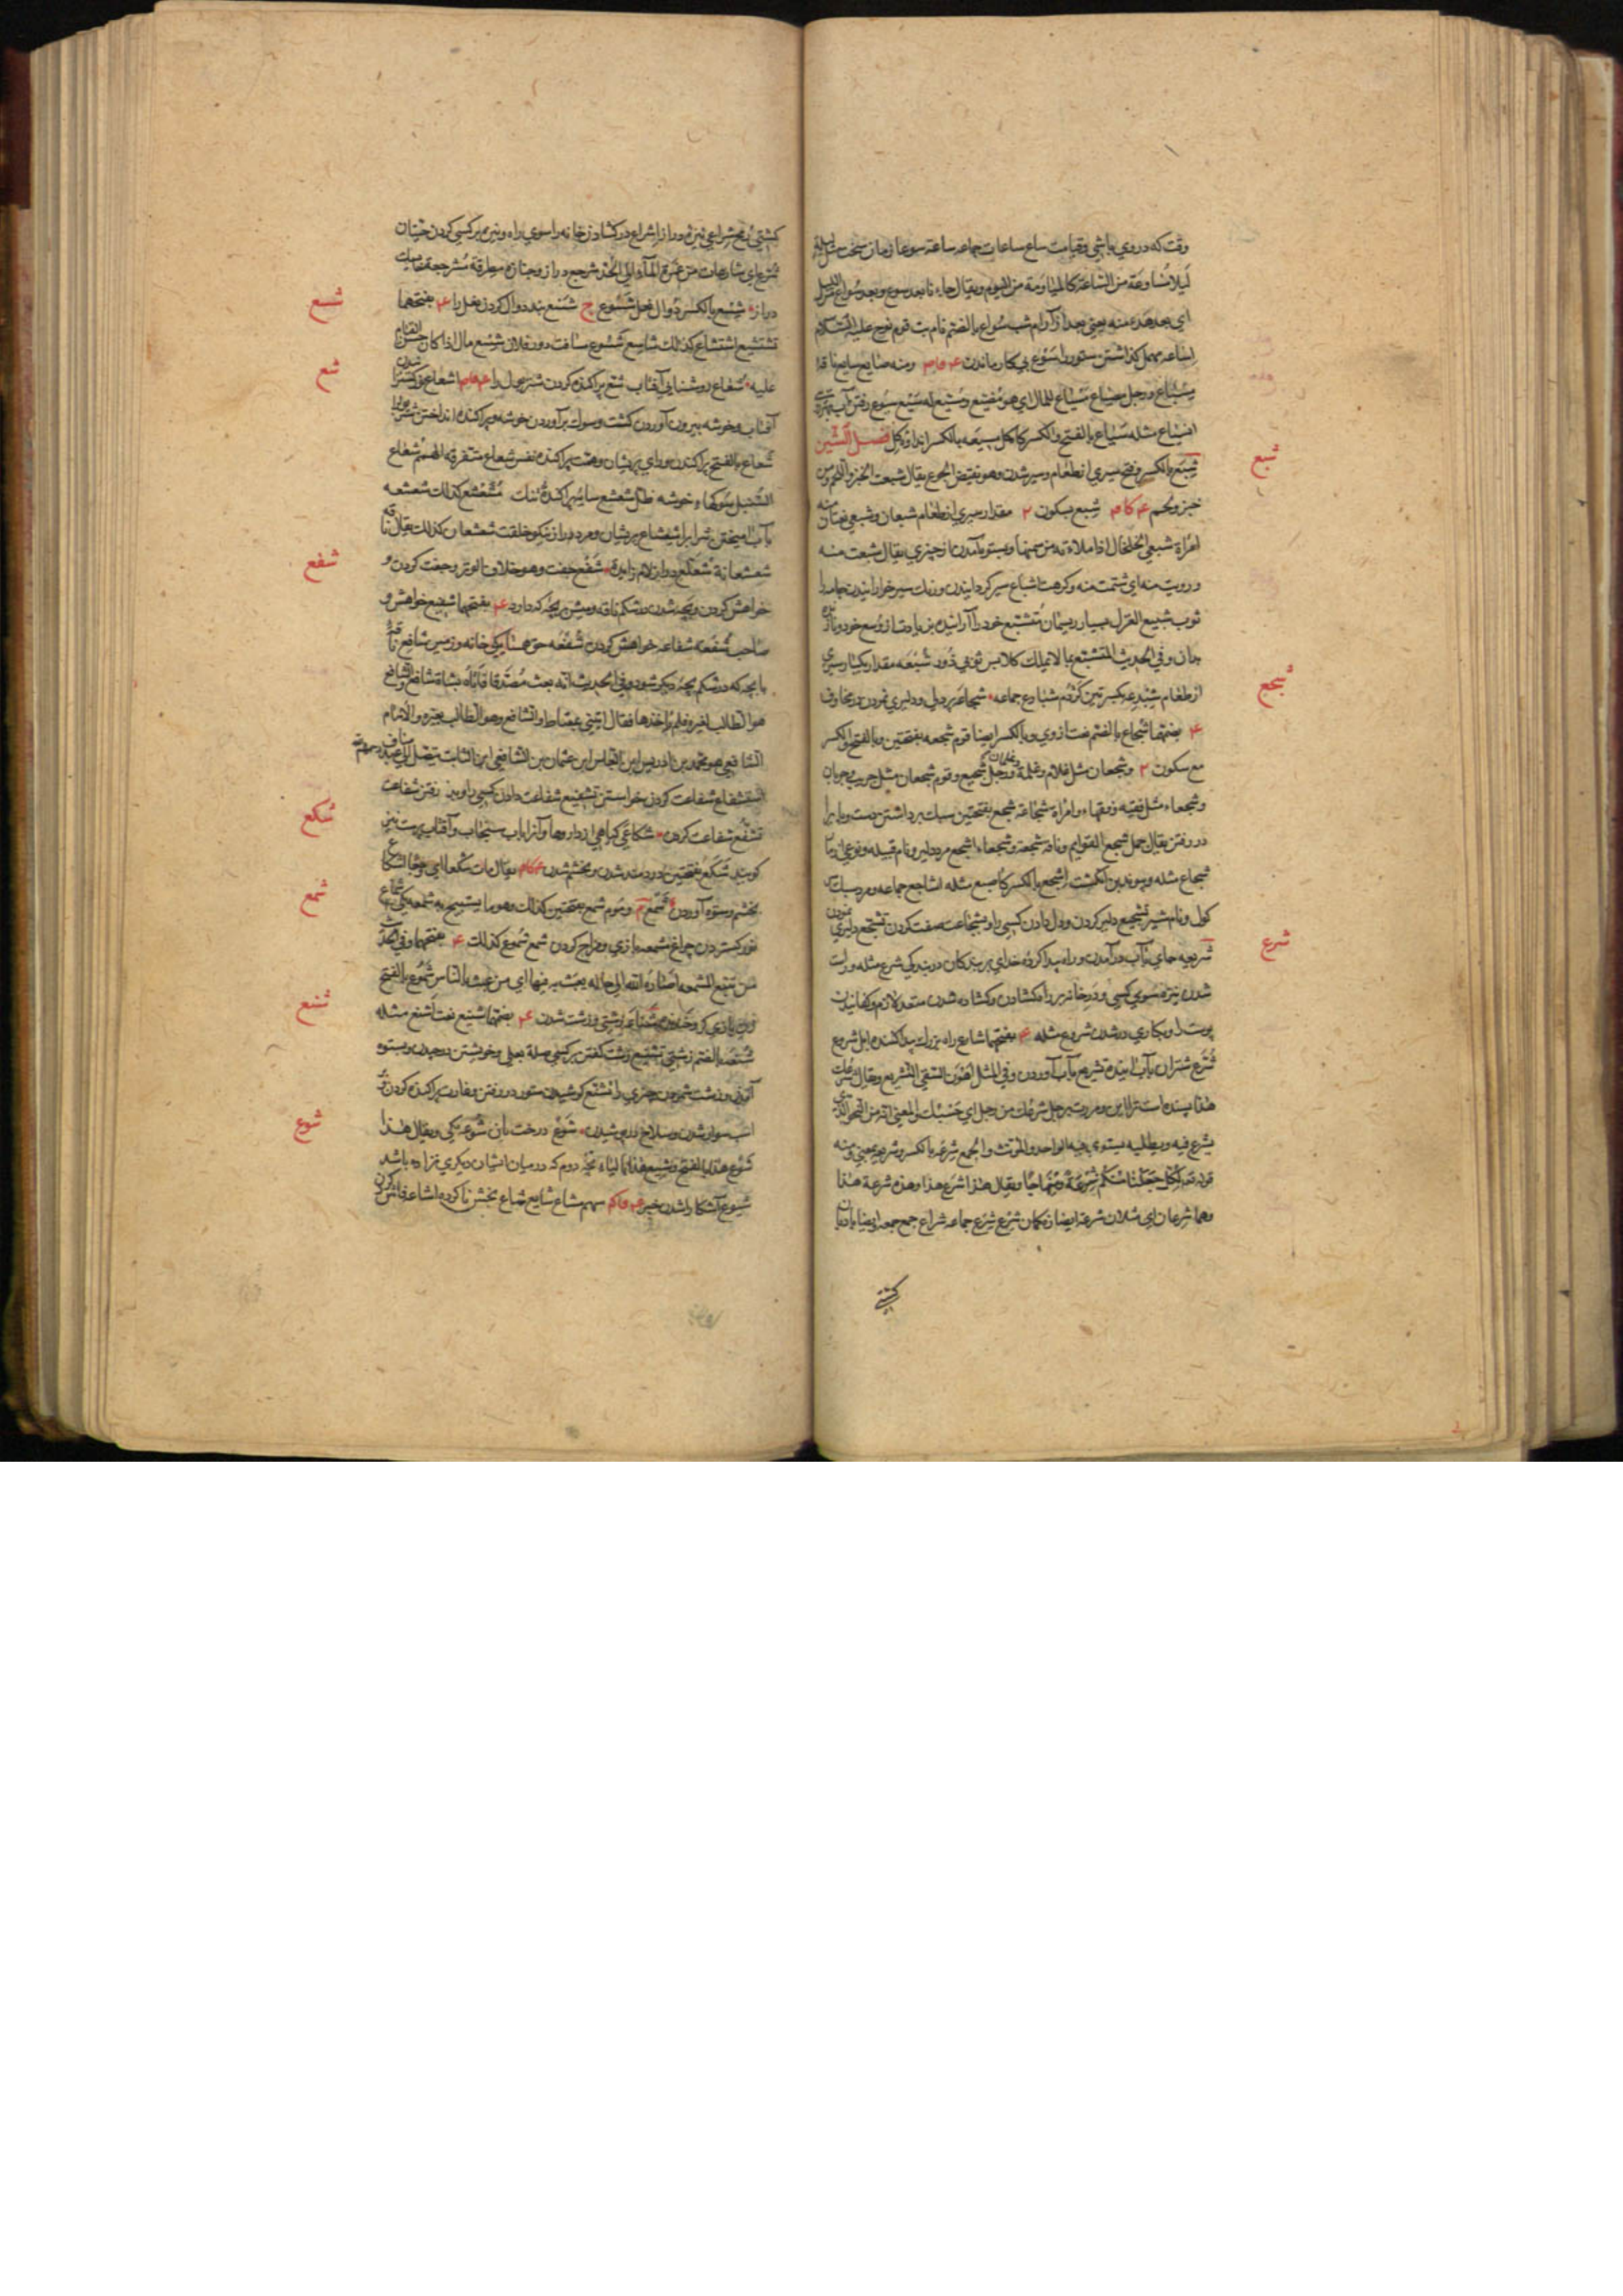 وقت که در وی باشی و قیامت ساع ساعات جماعه ساعة سوعا زمان سخت مثل لیلة
لیلاء مساوعة من الساعة کالمیاومة من الیوم و یقال جاءنا بعد سوع و بعد سواع من اللیل
ای بعد هدء منه یعنی بعد از آرام شب سواع بالضم نام بت قوم نوح علیه السلام
اساعه مهمل گذاشتن ستور را سوع بی کار ماندن ومنه ضایع سایع ناقة
مسیاع ورجل مضیاع مسیاع للمال ای هو مضیع ومسیع له سیع سیوع رفتن آب
انسیاع مثله سیاع بالفتح والکسر کاه گل مسیعه بالکسر اندازه گل فصل الشین
شبع بالکسر وفتح سیری از طعام و سیر شدن وهو نقیض الجوع یقال شبعت الخبز واللحم ومن
خبز ولحم شبع بسکون ۲ مقدار سیری از طعام شبعان وشبعی نعتان منه
امرأة شبعی الخلخال اذا ملاءته من سمنها و بستوه آمدن از چیزی یقال شبعت منه
ورویت منه ای سئمت منه و کرهت اشباع سیر گردانیدن و رنگ سیر خورانیدن جامه را
ثوب شبیع الغزل بسیار ریسمان تشبع خود را آراینده بزیادت از وسع خود و نازنده
بدان وفی الحدیث المتشبع بما لایملک کلابس ثوبی زور شبعه مقدار یکبار سیری
از طعام شبدعه بکسرتین کژدم شبادع جماعه شجاعه پر دلی و دلیری نمودن در مخاوف
بضمها شجاع بالضم نعت ازوی وبالکسر ایضا قوم شجعه بفتحتین وبالفتح والکسر
مع سکون ۲ وشجعان مثل غلام وغلمة وغلمان ورجل شجیع وقوم شجعان مثل جریب وجربان
وشجعاء مثل فقیه وفقهاء وامرأة شجاعة شجع بفتحتین سبک برداشتن دست و پا را
در رفتن یقال جمل شجع القوایم وناقة شجعة وشجعاء اشجع مرد دلیر و نام قبیله و نوعی از مار
شجاع مثله و پیوند بن انگشت اشجع بالکسر کاصبع مثله اشاجع جماعه و مرد سبک
گول و نام شیر تشجیع دلیر کردن و دل دادن کسی را و بشجاعت صفت کردن تشجع دلیری نمودن
شریعه جای بآب درآمدن و راه پیدا کرده خدای بر بندگان در بندگی شرع مثله و راست
شدن نیزه سوی کسی و در خانه بر راه گشادن و گشاده شدن متعد لازم و کفانیدن
پوست را و بکاری در شدن شروع مثله بفتحهما شارع راه بزرگ پیدا کننده اهل شروع
شرع شتران بآب آینده تشریع بآب آوردن وفی المثل اهون السقی التشریع ویقال شرعک
هذا بسنده است ترا این و مررت برجل شرعک من رجل ای حسبک والمعنی انه من النحو الذی
یشرع فیه ویطلبه یستوی فیه الواحد والمؤنث والجمع شرعة بالکسر وشریعه بمعنی ومنه
قوله تعالی لکل جعلنا منکم شرعة ومنهاجا ویقال هذا شرع هذا وهذه شرعة هذا
وهما شرعان ای مثلان شرعة ایضا زه کمان شرع شرع جماعه شراع جمع جمعه ایضا بادبان
کشتی
شبع
شجع
شرع
کشتی رمح شراعی نیزه دراز اشراع در گشادن خانه را سوی راه و نیزه بر کسی کردن حیتان
شرع ای شارعات من غمرة الماء الی الجد شرجع دراز و جنازه مطرقة مشرجعة خایسک
دراز شسع بالکسر دوال نعل شسوع ج شسع بند دوال کردن نعل را بفتحهما
تشسیع اشساع کذلک شاسع شسوع مسافت دور فلان شسع مال اذا کان حسن القیام
علیه شعاع روشنایی آفتاب شع پراکنده کردن شتر بول را اشعاع روشن شدن
آفتاب و خوشه بیرون آوردن کشت و سول برآوردن خوشه و پراکنده انداختن شتر بول را
شعاع بالفتح پراکندن و رای پریشان و همت پراکنده نفس شعاع متفرقه الهمم شعاع
السنبل سولها خوشه ظل شعشع سایه پراکنده تنک مشعشع کذلک شعشعه
بآب آمیختن شراب را شعشاع پریشان و مرد دراز نیکو خلقت شعشعان کذلک یقال ناقة
شعشعانة شعلع دراز لام زایده شفع جفت وهو خلاف الوتر و جفت کردن و
خواهش کردن و بچه شدن در شکم ناقه و میش بر بچه که دارد بفتحهما شفیع خواهشگر
صاحب شفعه شفاعه خواهش کردن شفعه حق همسایگی خانه و زمین شافع ناقة
با بچه که در شکم بچه دیگر شود وفی الحدیث انه بعث مصدقا فاتاه بشاة شافع والشافع
هو الطالب لغیره فلم یاخذها فقال ایتنی بمعتاط والشافع وهو الطالب لغیره والامام
الشافعی هو محمد بن ادریس ابن العباس ابن عثمان بن الشافعی ابن السائب یتصل الی عبد مناف
استشفاع شفاعت کردن خواستن تشفیع شفاعت دادن کسی را و پذیرفتن شفاعت
تشفع شفاعت کردن شکاعی گیاهی از داروها و آنرا باب سنجاب و آفتاب پرست نیز
گویند شکع بفتحتین دردمند شدن و بخشم شدن یقال بات شکعا ای وجعا اشکاع
بخشم و ستوه آوردن شمع وموم شمع بفتحتین کذلک وهو ما یستصبح به شمعه یکی اشماع
نور گستردن چراغ مشمعه بازی و مزاح کردن شمع شموع کذلک بفتحهما وفی الحدیث
من تتبع المشمعة اصاره الله الی حالة یعبث به فیها ای من عبث بالناس شموع بالفتح
زن بازی گر و خنده شناعه زشتی و زشت شدن بضمها شنیع نعت اشنع مثله
شنعه بالضم زشتی تشنیع زشت گفتن بر کسی صلة بعلی و خویشتن در چیدن و بستوه
آمدن و زشت شمردن چیزی را تشنع کوشیدن ستور در رفتن و غارت پراکنده کردن بر
اسب سوار شدن و سلاح در پوشیدن شوع درخت بان شوعه یکی ویقال هذا
شوع هذا بالفتح وشیع هذا لمیلاده بچه دوم که در میان ایشان دیگری نزاده باشد
شیوع آشکارا شدن خبر سهم مشاع شایع شاع بخش ناکرده اشاعه فاش کردن
شسع
شع
شفع
شکع
شمع
شنع
شوع